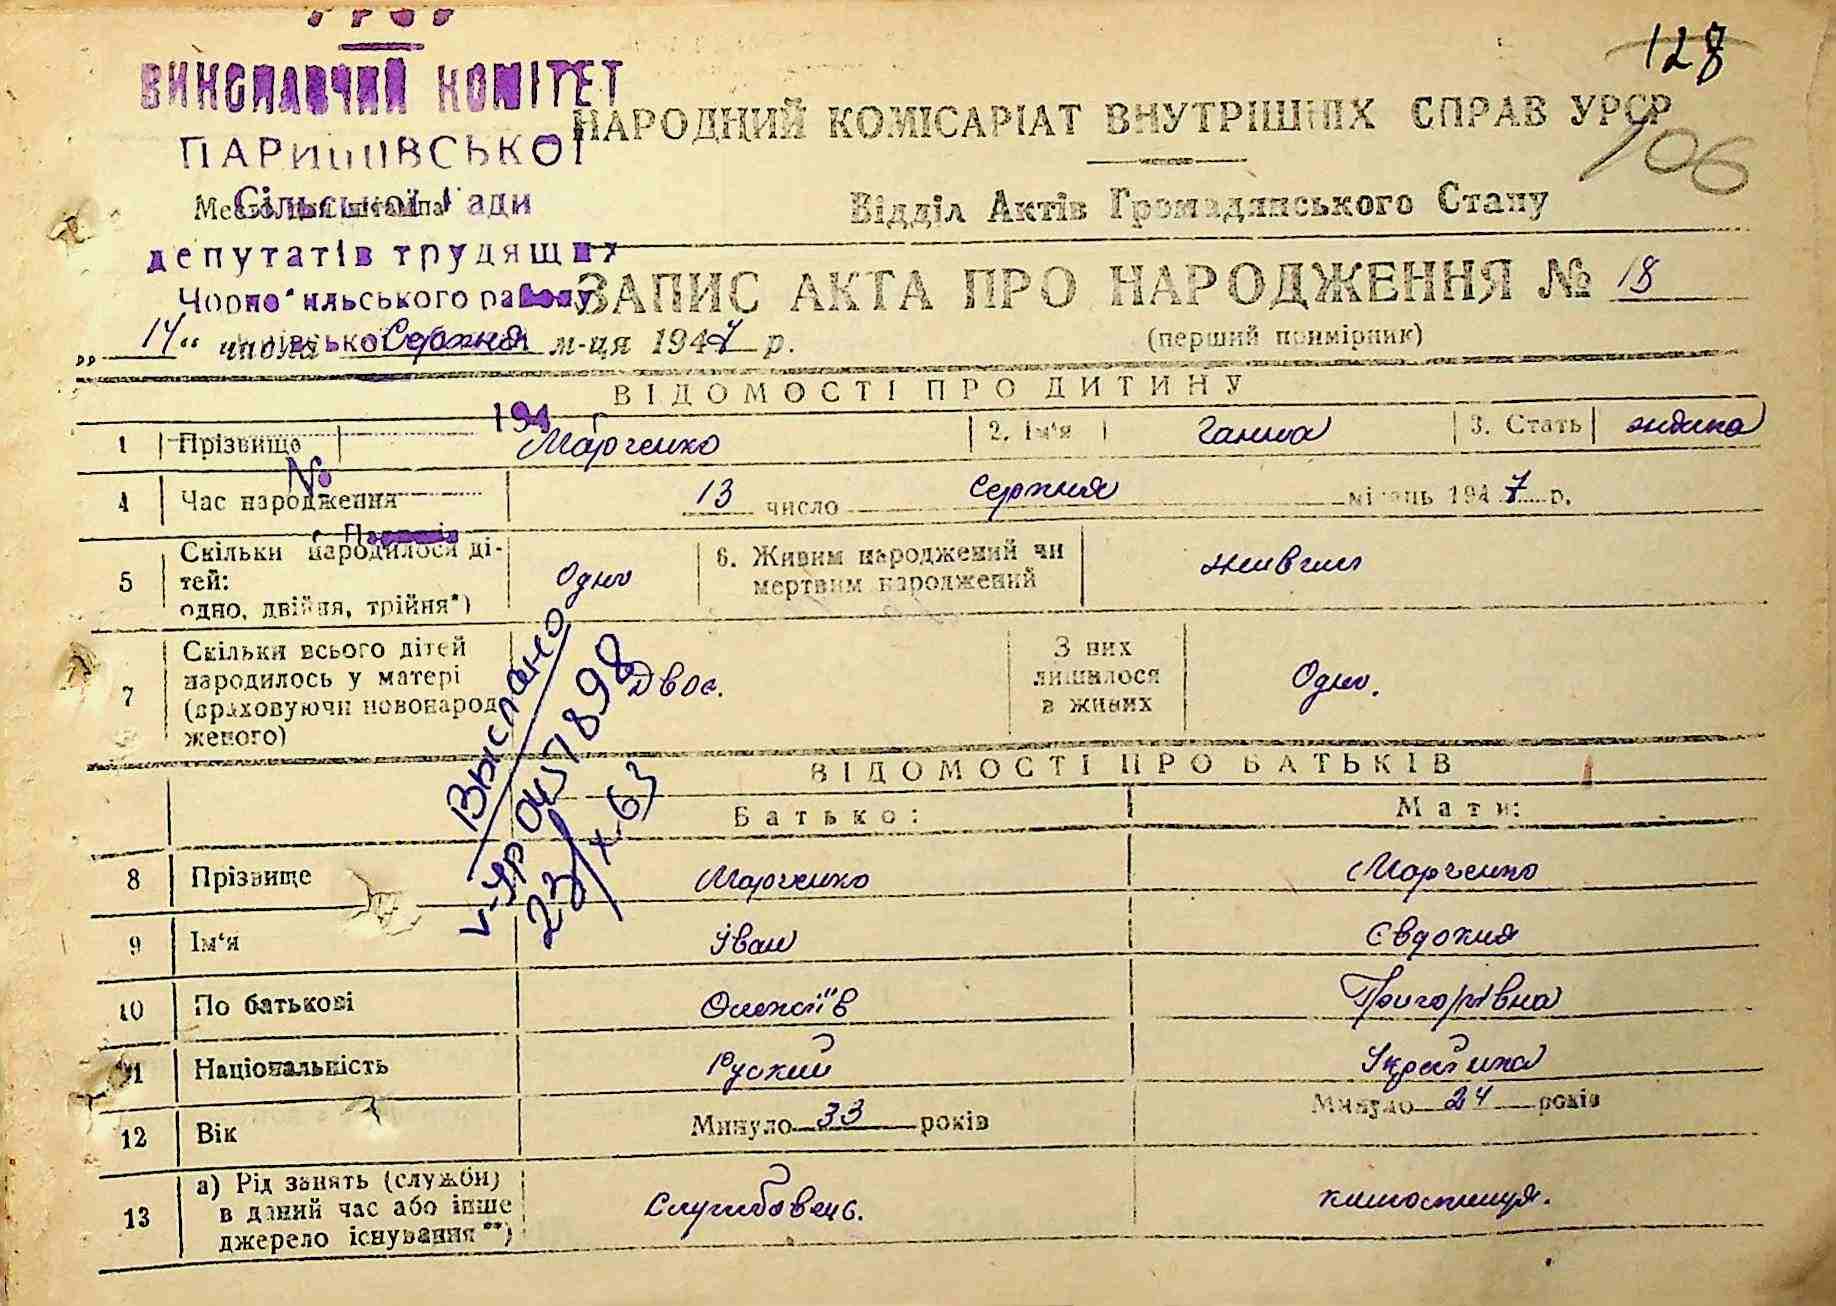 УРСР
128
ВИКОНАВЧИЙ КОМІТЕТ
НАРОДНИЙ КОМІСАРІАТ ВНУТРІШНІХ СПРАВ УРСР
106
ПАРИШІВСЬКОЇ
Сільської Ради
Відділ Актів Громадянського Стану
депутатів трудящих
Чорнобильського району
ЗАПИС АКТА ПРО НАРОДЖЕННЯ № 18
(перший примірник)
„14“ числа Серпня м-ця 1947 р.
ВІДОМОСТІ ПРО ДИТИНУ
194
1 Прізвище Марченко 2. Ім'я Ганна 3. Стать жіноча
№
4 Час народження 13 число Серпня місяць 1947 р.
Паришів
5 Скільки народилося ді-
тей:
одно, двійня, трійня*) Одно
6. Живим народжений чи
мертвим народжений живим
7 Скільки всього дітей
народилось у матері
(враховуючи новонарод
женого) Двоє.
З них
лишилося
в живих Одно.
Выслано
У-ЯР 0457898
23/X-63
ВІДОМОСТІ ПРО БАТЬКІВ
Батько: Мати:
8 Прізвище Марченко Марченко
9 Ім'я Іван Євдокия
10 По батькові Олексіїв Григорівна
11 Національність Руский Україн́ка
12 Вік Минуло 33 років Минуло 24 років
13 а) Рід занять (служби)
в даний час або інше
джерело існування**) Службовець. колгоспниця.